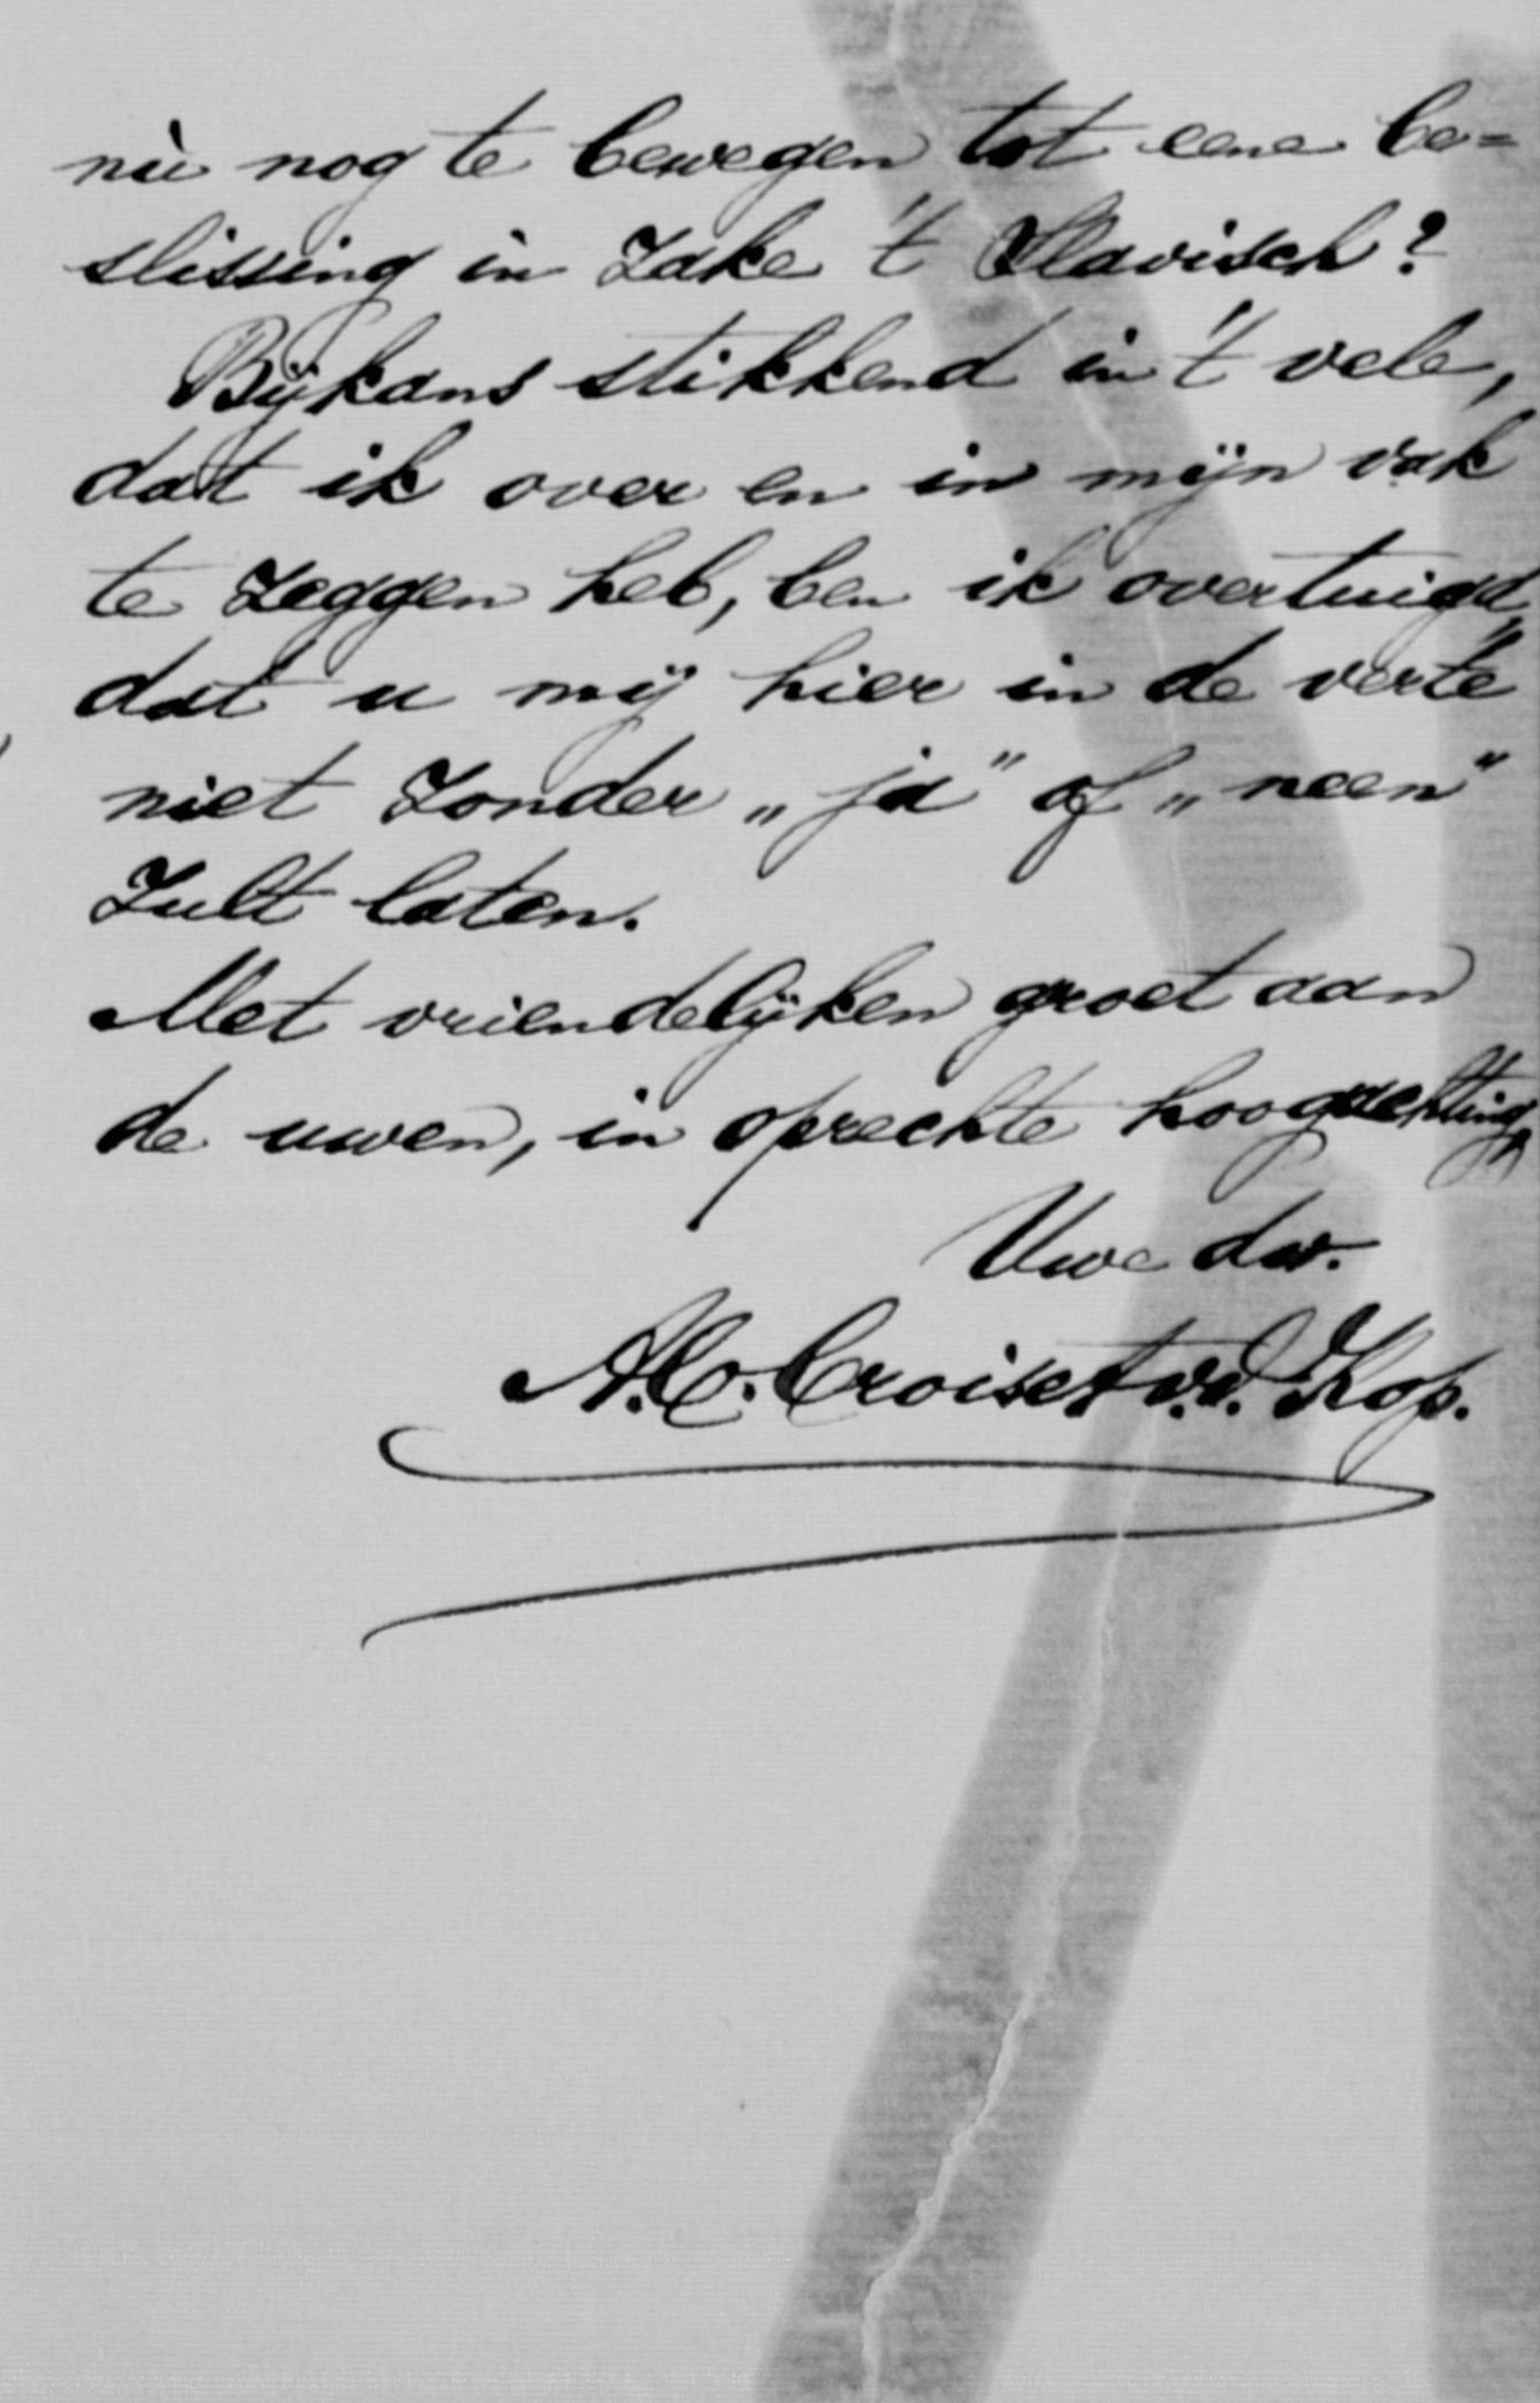 nù nog te bewegen tot eene be=
slissing in zake 't Slavisch?
Bijkans stikkend in 't vele,
dat ik over en in mijn vak
te zeggen heb, ben ik overtuigd,
dat u mij hier in de verte
niet zonder „ja" of „neen"
zult laten.
Met vriendelijken groet aan
de uwen, in oprechte hoogachting,
Uwe dw.
A.C. Croiset v.d. Kop.